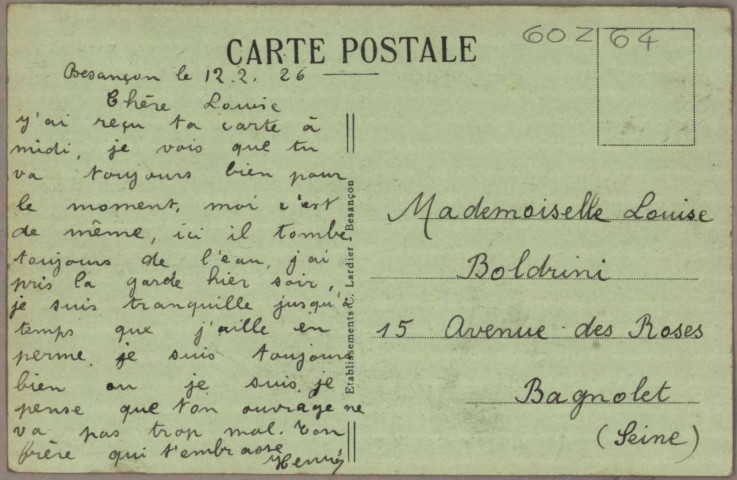 CARTE POSTALE
60264
Besançon le 12.2.26
Chère Louise
y'ai reçu ta carte à
midi, je vois que tu
va toujours bien pour
le moment, moi c'est
de même, ici il tombe
toujours de l'eau, j'ai
pris la garde hier soir,
je suis tranquille jusqu'à
temps que j'aille en
perme, je suis toujours
bien ou je suis, je
pense que ton ouvrage ne
va pas trop mal. Ton
frère qui t'embrasse
Henri
Etablissements C. Lardier - Besançon
Mademoiselle Louise
Boldrini
15 Avenue des Roses
Bagnolet
(Seine)